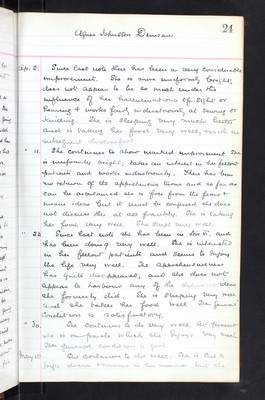 24
Agnes Johnston Denovan
Apr. 2. Since last note there has been a very considerable
improvement. She is more uniformly bright;
does not appear to be so much under the
influence of her hallucinations of sight or
hearing & works fairly industriously at sewing or
knitting. She is sleeping very much better
and is taking her food very well, with no
subsequent
" 11. She continues to show marked improvement. She
is uniformly bright, takes an interest in her fellow
patients and works industriously. There has been
no return of the apprehensiveness and so far as
can be ascertained she is free from the
ideas but it must be confessed she does
not discuss them at all frankly. She is taking
her food very well. She sleeps very well.
" 23 Since last note she has been in
and has been doing very well. She is interested
in her fellow patients and seems to enjoy
the life very well. The apprehensiveness
has quite disappeared, and she does not
appear to harbour any of the ideas
she formerly did. She is sleeping very well
and she takes her food well. Her general
condition is satisfactory.
" 30. She continues to do very well. At present
she is on parole which she enjoys very much.
Her general condition is good.
May 10. She continues to do well. She is
in her manner but she